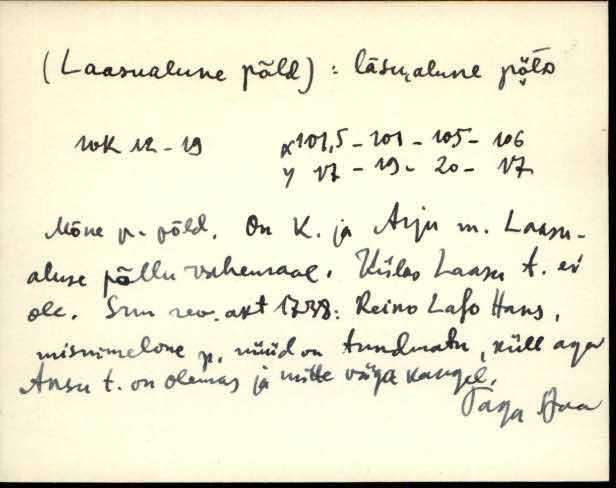 (Laasualune põld) : lāsu̯alune põ̭lᴅ
10K 12 - 19 x 101,5 - 101 - 105 - 106
y 17 - 19 - 20 - 17
Mõne p. põld. On K. ja Arju m. Laasu-
aluse põllu vahemaal. Külas Laasu t. ei
ole. Srn rev. akt 1738: Reino Lafo Hans,
misnimelone p. nüüd on tundmatu, küll aga
Ansu t. on olemas ja mitte väga kaugel.
Taga